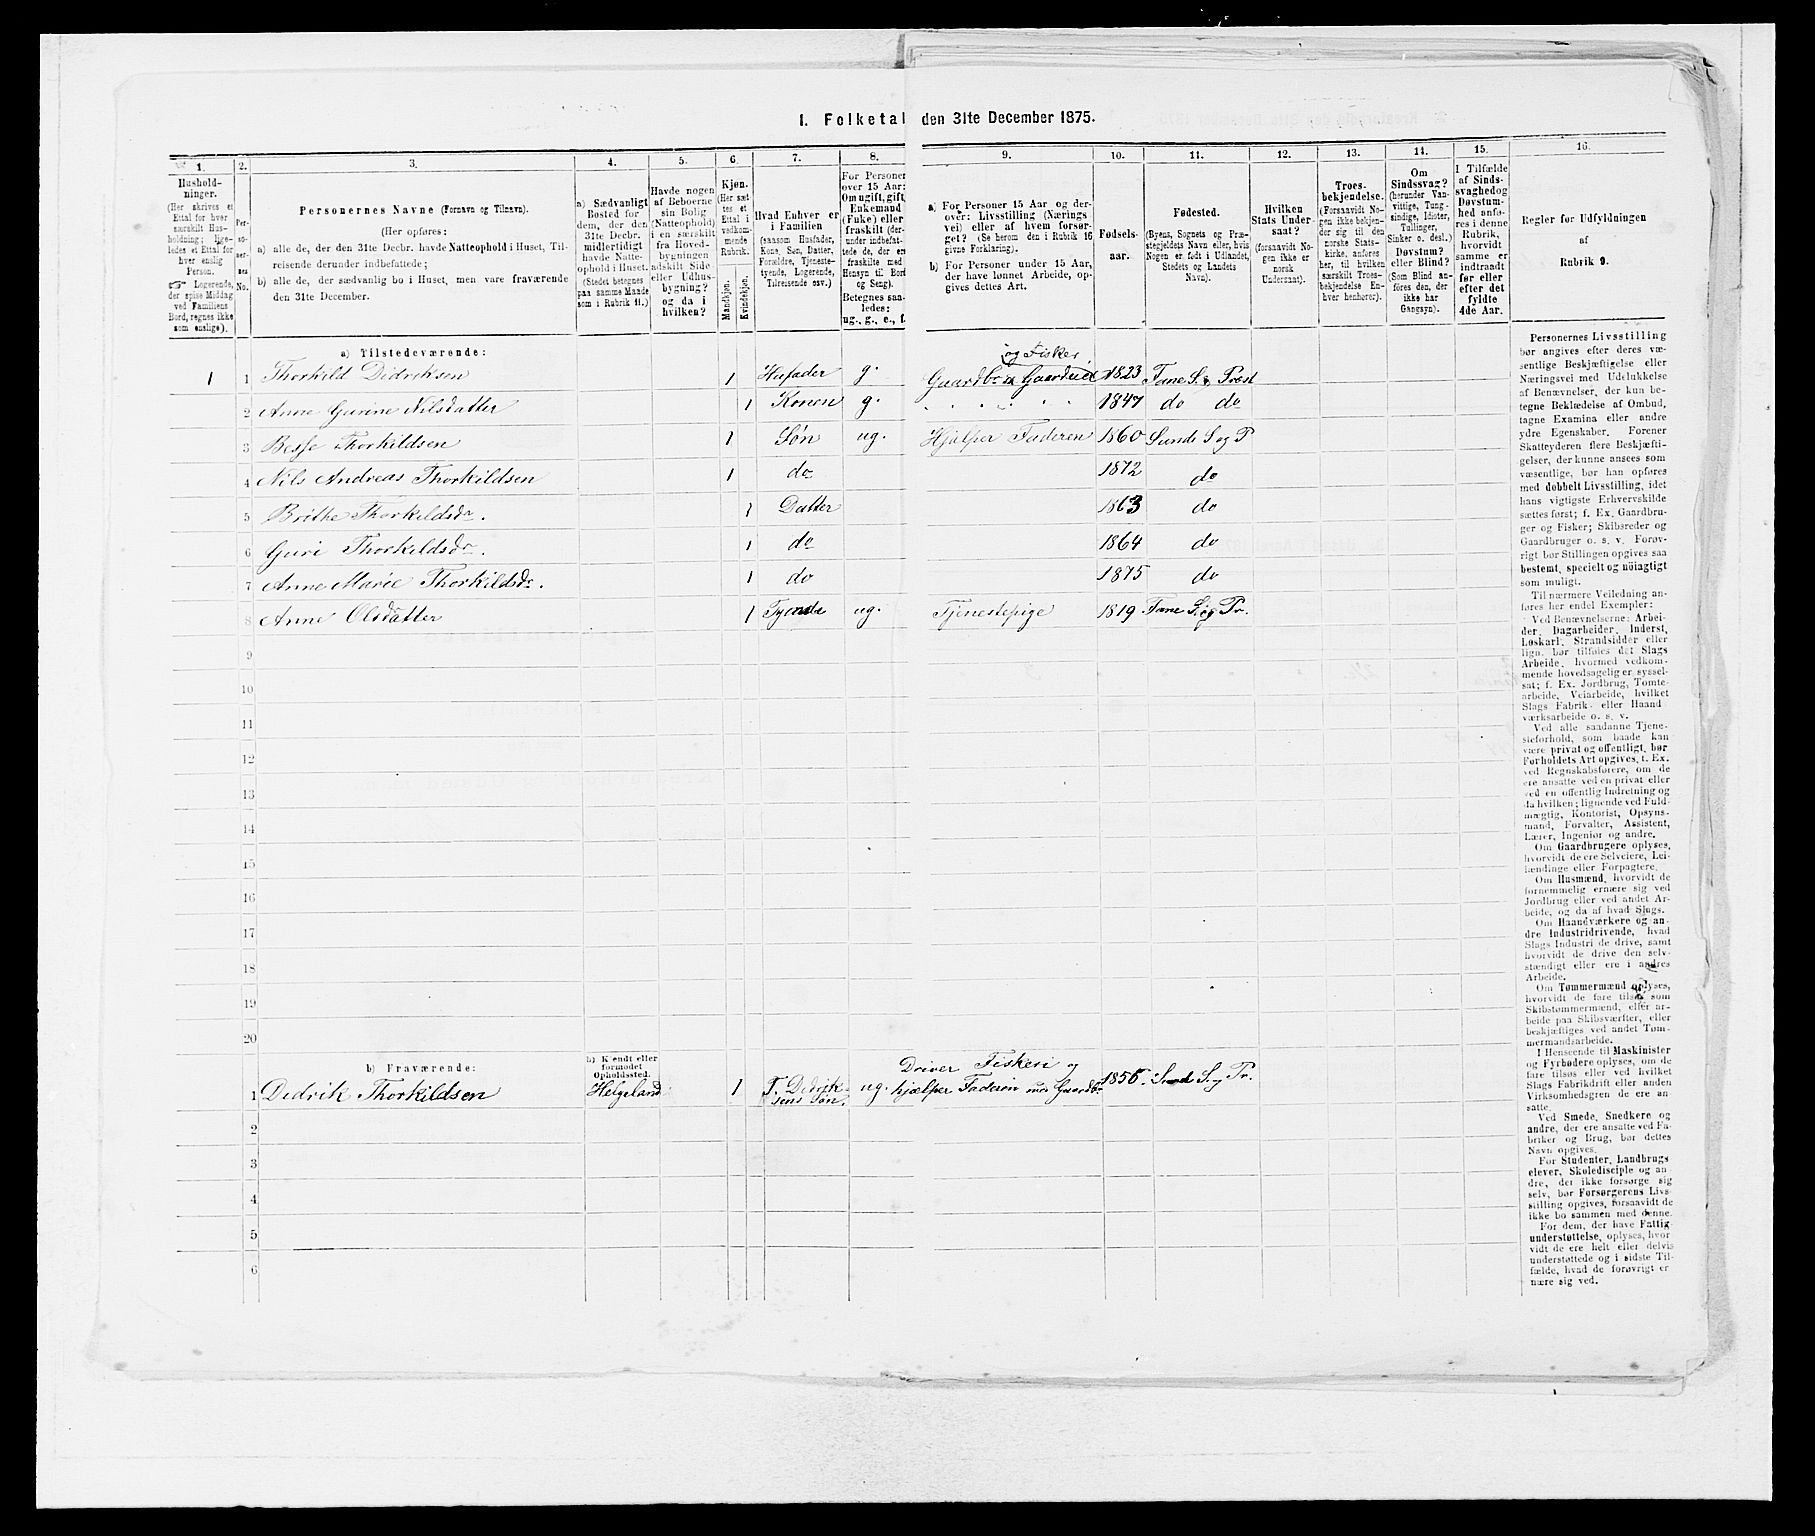 1. Folketal den 31te December 1875.
1. 2. 3. 4. 5. 6. 7. 8. 9. 10. 11. 12. 13. 14. 15. 16.
Hushold-
ninger.
(Her skrives et
Ettal for hver
særskilt Hus-
holdning; lige-
ledes et Ettal for
hver enslig
Person.
☞ Logerende,
der spise Middag
ved Familiens
Bord, regnes ikke
som enslige).
Per-
so-
ner-
nes
No.
Personernes Navne (Fornavn og Tilnavn).
(Her opføres:
a) alle de, der den 31te Decbr. havde Natteophold i Huset, Til-
reisende derunder indbefattede;
b) alle de, der sædvanlig bo i Huset, men vare fraværende
den 31te December.
a) Sædvanligt
Bosted for
dem, der den
31te Decbr.
midlertidigt
havde Natte-
ophold i Huset.
(Stedet betegnes
paa samme Maade
som i Rubrik 11.)
Havde nogen
af Beboerne
sin Bolig
(Natteophold)
i en særskilt
fra Hoved-
bygningen
adskilt Side-
eller Udhus-
bygning?
og da i
hvilken?
Kjøn.
(Her sæt-
tes et
Ettal i
vedkom-
mende
Rubrik.
Mandkjøn.
Kvindekjøn.
Hvad Enhver er
i Familien
(saasom Husfader,
Kone, Søn, Datter,
Forældre, Tjeneste-
tyende, Logerende,
Tilreisende osv.)
For Personer
over 15 Aar:
Om ugift, gift,
Enkemand
(Enke) eller
fraskilt (der-
under indbefat-
tede de, der ere
fraskilte med
Hensyn til Bord
og Seng).
Betegnes saa-
ledes:
ug., g., e., f.
a) For Personer 15 Aar og der-
over: Livsstilling (Nærings-
vei) eller af hvem forsør-
get? (Se herom den i Rubrik 16
givne Forklaring).
b) For Personer under 15 Aar,
der have lønnet Arbeide, op-
gives dettes Art.
Fødsels-
aar.
Fødested.
(Byens, Sognets og Præ-
stegjeldets Navn eller, hvis
Nogen er født i Udlandet,
Stedets og Landets
Navn).
Hvilken
Stats Under-
saat?
(forsaavidt No-
gen ikke er
norsk
Undersaat).
Troes-
bekjendelse.
(Forsaavidt No-
gen ikke bekjen-
der sig til den
norske Stats-
kirke, anføres
her, til hvilken
særskilt Troes-
bekjendelse En-
hver henhører).
Om
Sindssvag?
(herunder Van-
vittige, Tung-
sindige, Idioter,
Tullinger,
Sinker o. desl.)
Døvstum?
eller Blind?
(Som Blind an-
føres den, der
ikke har
Gangsyn).
I Tilfælde
af Sinds-
svaghedog
Døvstum-
hed anfø-
res i denne
Rubrik,
hvorvidt
samme er
indtraadt
før eller
efter det
fyldte
4de Aar.
Regler for Udfyldningen
af
Rubrik 9.
a) Tilstedeværende:
og Fisker
1 1 Thorkild Didriksen 1 Husfader g. Gaardbr. 1823 Fane S. & Præst
2 Anne Gurine Nilsdatter 1 Konen g. " " " " " 1847 do do
3 Besse Thorkildsen 1 Søn ug. Hjælper Faderen 1860 Sunds S og P
4 Nils Andreas Thorkildsen 1 do 1872 do
5 Brithe Thorkildsdr. 1 Datter 1863 do
6 Guri Thorkildsdr. 1 do 1864 do
7 Anne Marie Thorkildsdr. 1 do 1875 do
8 Anne Olsdatter 1 Tyende ug. Tjenestepige 1819 Fane S. og Pr.
9
10
11
12
13
14
15
16
17
18
19
20
b) Fraværende:
b) Kjendt eller
formodet
Opholdssted.
Driver Fiskeri og
1 Didrik Thorkildsen Helgeland 1 T. Didrik- ug. hjælper Faderen med Gaardbr. 1856. Sund S. og Pr.
sens Søn.
2
3
4
5
6
Personernes Livsstilling
bør angives efter deres væ-
sentlige Beskjæftigelse eller
Næringsvei med Udelukkelse
af Benævnelser, der kun be-
tegne Beklædelse af Ombud,
tagne Examina eller andre
ydre Egenskaber. Forener
Skatteyderen flere Beskjæfti-
gelser, der kunne ansees som
væsentlige, bør han opføres
med dobbelt Livsstilling, idet
hans vigtigste Erhvervskilde
sættes først; f. Ex. Gaardbru-
ger og Fisker; Skibsreder og
Gaardbruger o. s. v. Forøv-
rigt bør Stillingen opgives saa
bestemt, specielt og nöiagtigt
som muligt.
Til nærmere Veiledning an-
føres her endel Exempler:
Ved Benævnelserne: Arbei-
der, Dagarbeider, Inderst,
Løskarl, Strandsidder eller
lign. bør tilføies det Slags
Arbeide, hvormed vedkom-
mende hovedsagelig er syssel-
sat; f. Ex. Jordbrug, Tomte-
arbeide, Veiarbeide, hvilket
Slags Fabrik- eller Haand-
værksarbeide o. s. v.
Ved alle saadanne Tjene-
steforhold, som baade kan
være privat og offentligt, bør
Forholdets Art opgives, t. Ex.
ved Regnskabsførere, om de
ere ansatte ved en privat eller
ved en offentlig Indretning og
da hvilken; lignende ved Fuld-
mægtig, Kontorist, Opsyns-
mand, Forvalter, Assistent,
Lærer, Ingeniør og andre.
Om Gaardbrugere oplyses,
hvorvidt de ere Selveiere, Lei-
lændinge eller Forpagtere.
Om Husmænd, hvorvidt de
fornemmelig ernære sig ved
Jordbrug eller ved andet Ar-
beide, og da af hvad Slags.
Om Haandværkere og an-
dre Industridrivende, hvad
Slags Industri de drive, samt
hvorvidt de drive den selv-
stændigt eller ere i andres
Arbeide.
Om Tømmermænd oplyses,
hvorvidt de fare tilsøs som
Skibstømmermænd, eller ar-
beide paa Skibsværfter, eller
beskjæftiges ved andet Tøm-
mermandsarbeide.
I Henseende til Maskinister
og Fyrbødere oplyses, om de
fare tilsøs eller ved hvilket
Slags Fabrikdrift eller anden
Virksomhedsgren de ere an-
satte.
Ved Smede, Snedkere og
andre, der ere ansatte ved Fa-
briker og Brug, bør dettes
Navn opgives.
For Studenter, Landbrugs-
elever, Skoledisciple og an-
dre, der ikke forsørge sig
selv, bør Forsørgerens Livs-
stilling opgives, forsaavidt de
ikke bo sammen med denne.
For dem, der have Fattig-
understøttelse, oplyses, hvor-
vidt de ere helt eller delvis
understøttede og i sidste Til-
fælde, hvad de forøvrigt er-
nære sig ved.